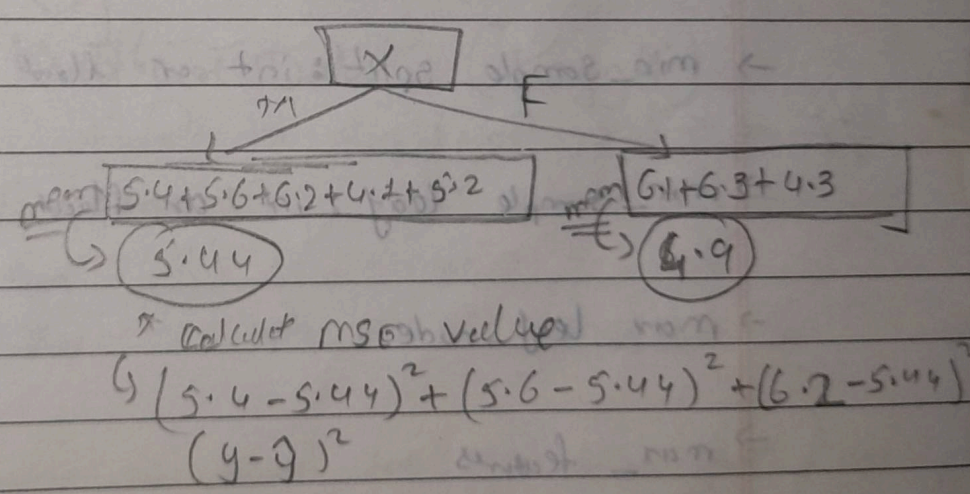 X
M F
mean 5.4+5.6+6.2+4.7+5.2 mean 6.1+6.3+4.3
5.44 4.9
* calculet mse value
(5.4-5.44)²+(5.6-5.44)²+(6.2-5.44)²
(y-ŷ)²